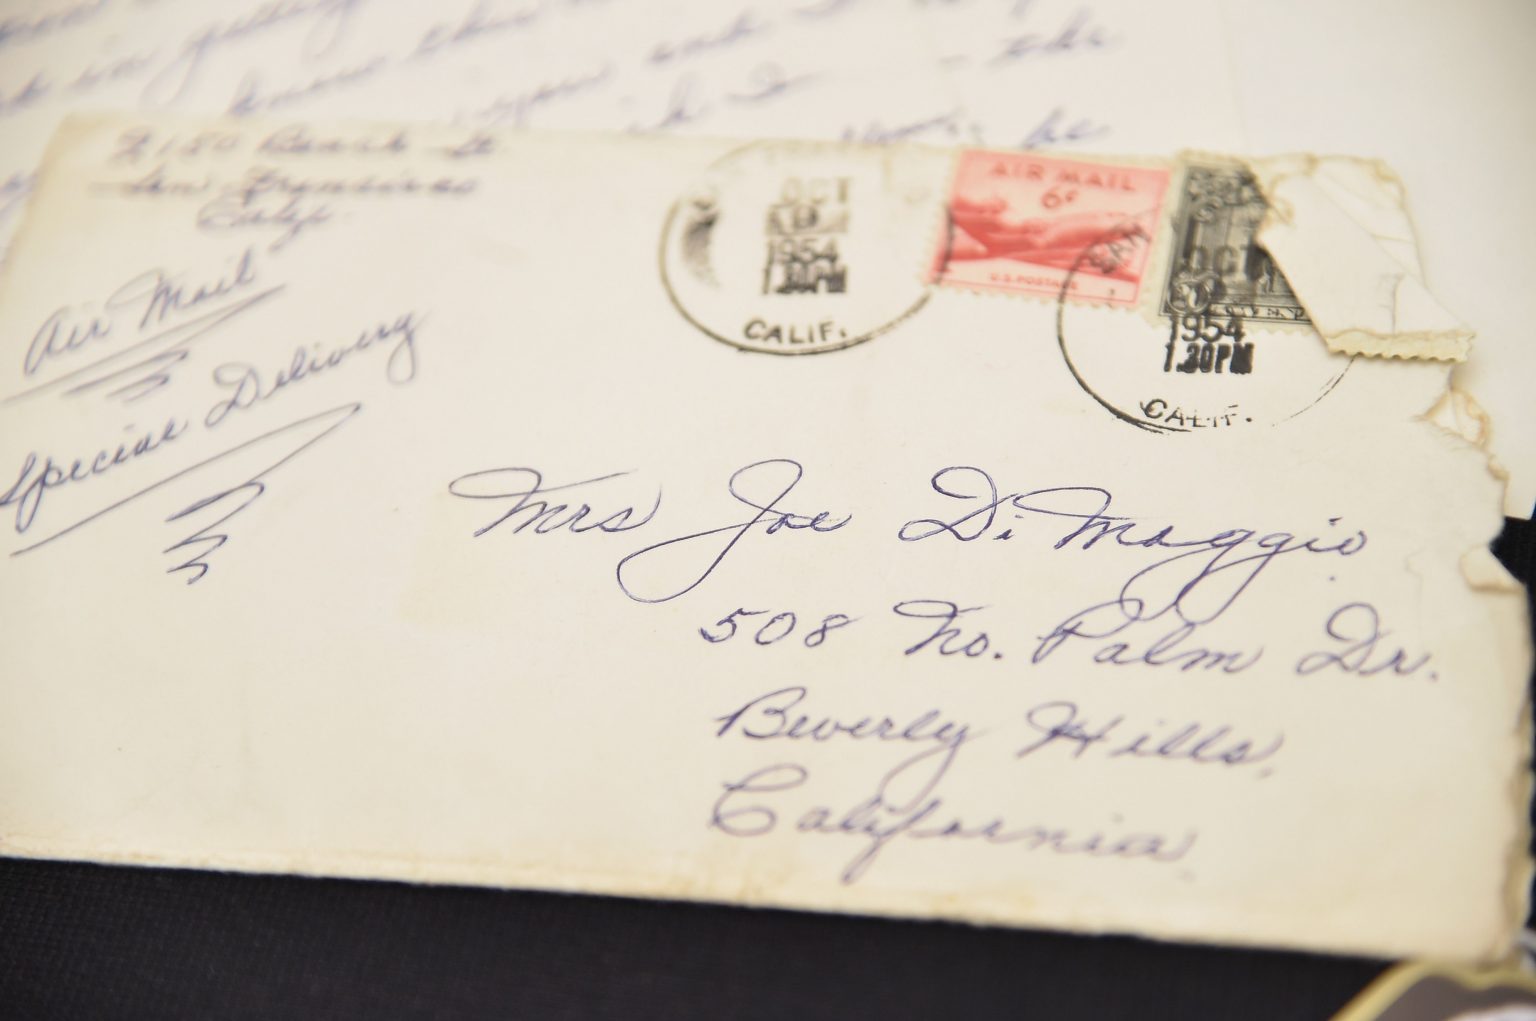 in
know this
you and I
I - the
be
2150 Beach St
San Francisco
Calif.
Air Mail
Special Delivery
OCT
1954
1.30PM
CALIF.
AIR MAIL
6¢
U.S. POSTAGE
SAN
OCT
1954
1.30PM
CALIF.
Mrs Joe DiMaggio
508 No. Palm Dr.
Beverly Hills,
California